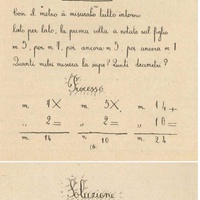 Con il metro à misurato tutto intorno
lato per lato, la prima volta à notato sul foglio
m 5, per m 7, per ancora m 5, per ancora m 7
Quanti metri misura la siepe? Quanti decametri?
Processo
m. 7 X m. 5 X m. 14 +
„ 2 = „ 2 = „ 10 =
m. 14 m. 10 m. 24
Soluzione